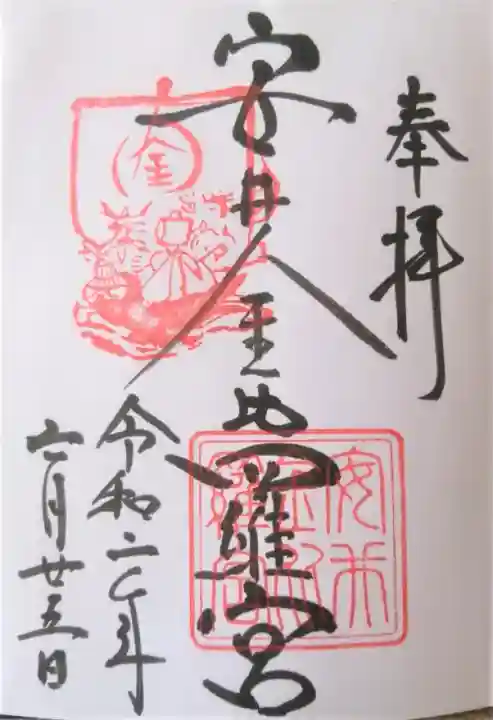 奉拝
安井金比羅宮
金
安井金比羅宮
令和二年
六月廿五日